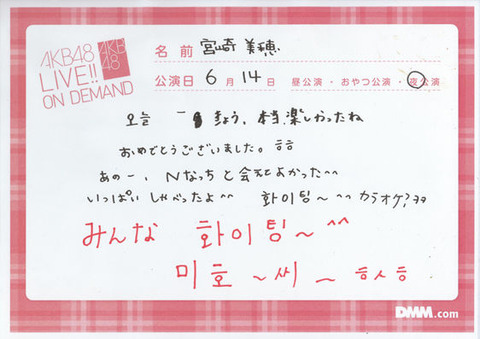 AKB48
LIVE!!
ON DEMAND
AKB
48
名前 宮崎 美穂
公演日 6 月 14 日 昼公演・おやつ公演・夜公演
오늘 きょう、本当、楽しかったね
おめでとうございました。ㅎㅎ
あのー、Nなっちと会えてよかった^^
いっぱい しゃべったよ^^ 화이팅~^^ カラオケ?ㅋㅋ
みんな 화이팅~^^
미호~씨~ ㅎㅅㅎ
DMM.com